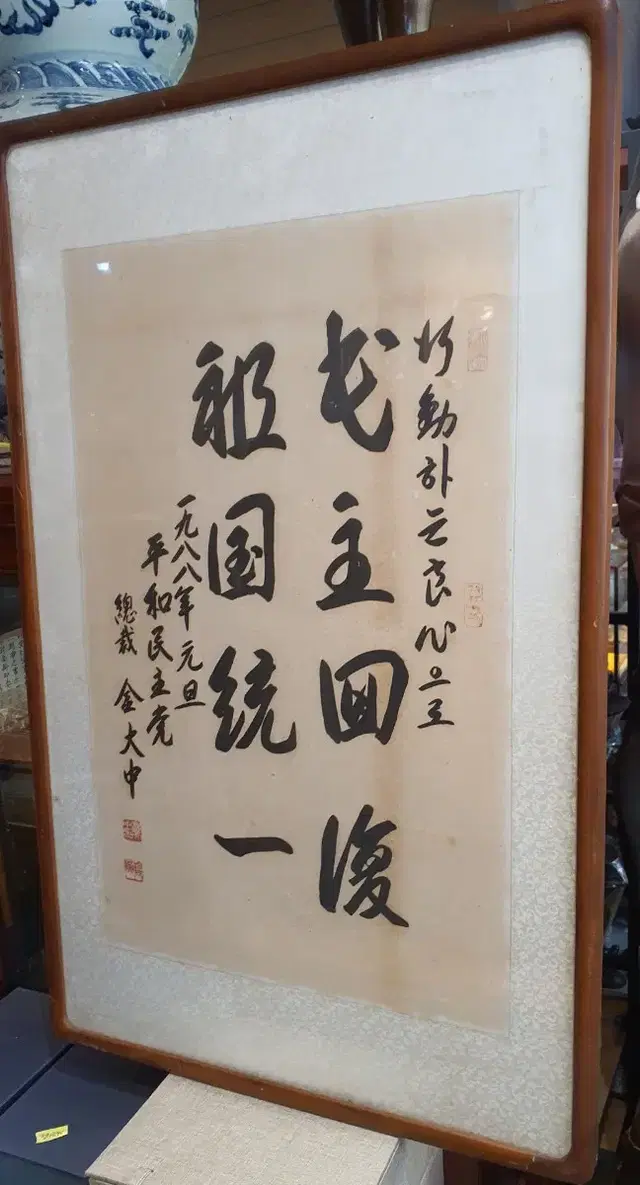 行動하는 良心으로
民主回復
祖国統一
一九八八年 元旦
平和民主党
總裁 金大中